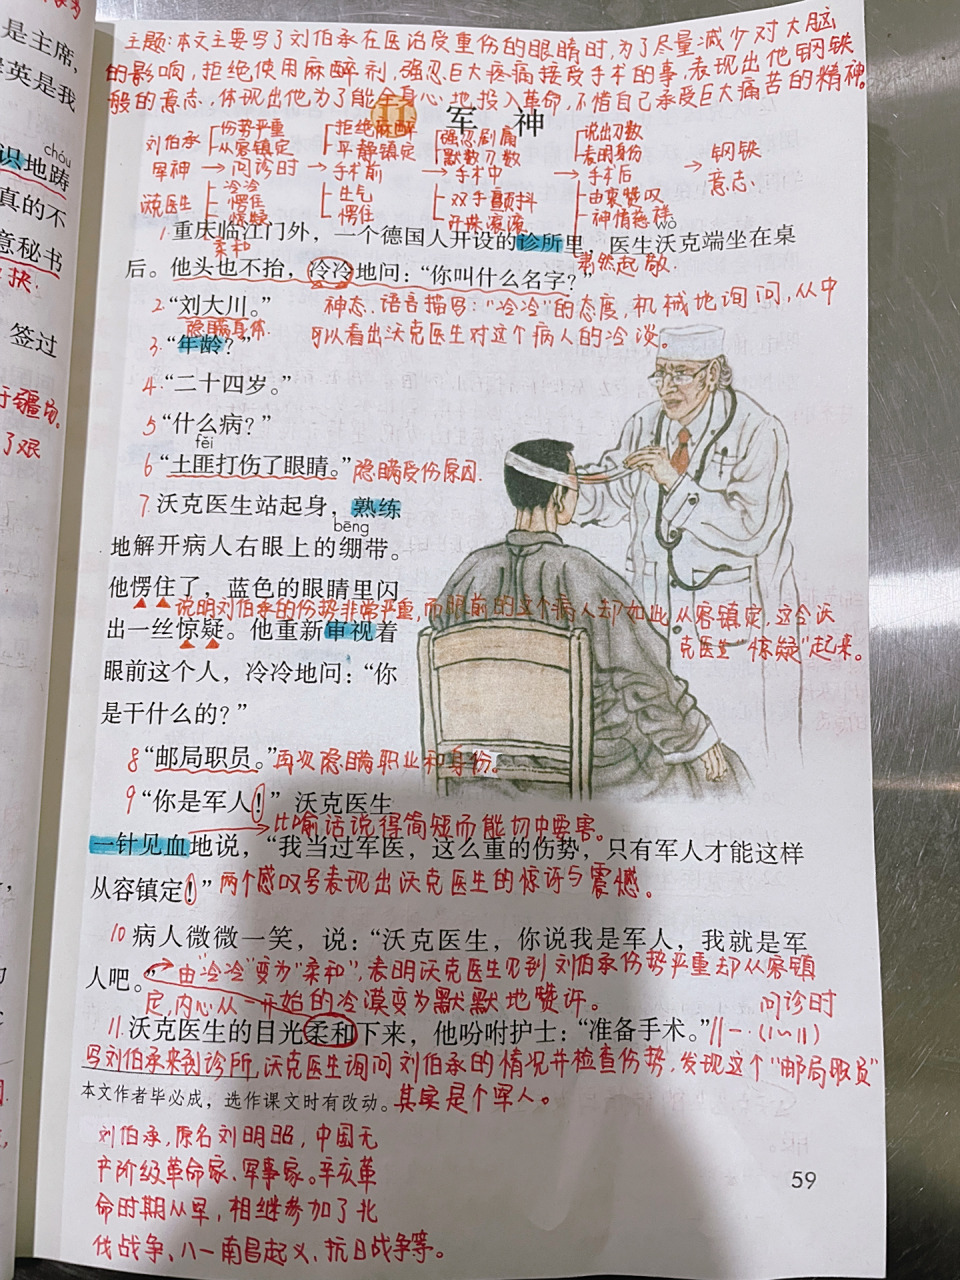 是主席，
英是我
chóu
识地踌
真的不
意秘书
抉.
签过
于疆场。
了艰
主题:本文主要写了刘伯承在医治受重伤的眼睛时,为了尽量减少对大脑
的影响,拒绝使用麻醉剂,强忍巨大疼痛接受手术的事,表现出他钢铁
般的意志,体现出他为了能全身心地投入革命,不惜自己承受巨大痛苦的精神。
11 军 神
刘伯承 伤势严重 从容镇定 拒绝麻醉 平静镇定 强忍剧痛 默数刀数 说出刀数 表明身份
军神 → 问诊时 → 手术前 → 手术中 → 手术后 → 钢铁意志.
沃克医生 冷冷 愣住 惊疑 生气 愣住 双手颤抖 汗珠滚滚 由衷赞叹 神情慈祥
wò
1.重庆临江门外，一个德国人开设的诊所里，医生沃克端坐在桌
柔和 肃然起敬.
后。他头也不抬，冷冷地问：“你叫什么名字？”
2“刘大川。” 神态.语言描写:“冷冷”的态度,机械地询问,从中
隐瞒身体. 可以看出沃克医生对这个病人的冷淡。
3.“年龄？”
4.“二十四岁。”
5“什么病？”
fěi
6“土匪打伤了眼睛。”隐瞒受伤原因.
7.沃克医生站起身，熟练
bēng
地解开病人右眼上的绷带。
他愣住了，蓝色的眼睛里闪
说明刘伯承的伤势非常严重,而眼前的这个病人却如此从容镇定,这令沃
出一丝惊疑。他重新审视着
克医生“惊疑”起来。
眼前这个人，冷冷地问：“你
是干什么的？”
8“邮局职员。”再次隐瞒职业和身份。
9“你是军人！”沃克医生
比喻话说得简短而能切中要害。
一针见血地说，“我当过军医，这么重的伤势，只有军人才能这样
从容镇定！”两个感叹号表现出沃克医生的惊讶与震撼。
10病人微微一笑，说：“沃克医生，你说我是军人，我就是军
人吧。”由“冷冷”变为“柔和”,表明沃克医生见到刘伯承伤势严重却从容镇
定,内心从一开始的冷漠变为默默地赞许。 问诊时
11.沃克医生的目光柔和下来，他吩咐护士：“准备手术。”//一.(1~11)
写刘伯承来到诊所,沃克医生询问刘伯承的情况并检查伤势,发现这个“邮局职员”
本文作者毕必成，选作课文时有改动。其实是个军人。
刘伯承,原名刘明昭,中国无
产阶级革命家、军事家。辛亥革
命时期从军,相继参加了北
伐战争、八一南昌起义、抗日战争等。
59